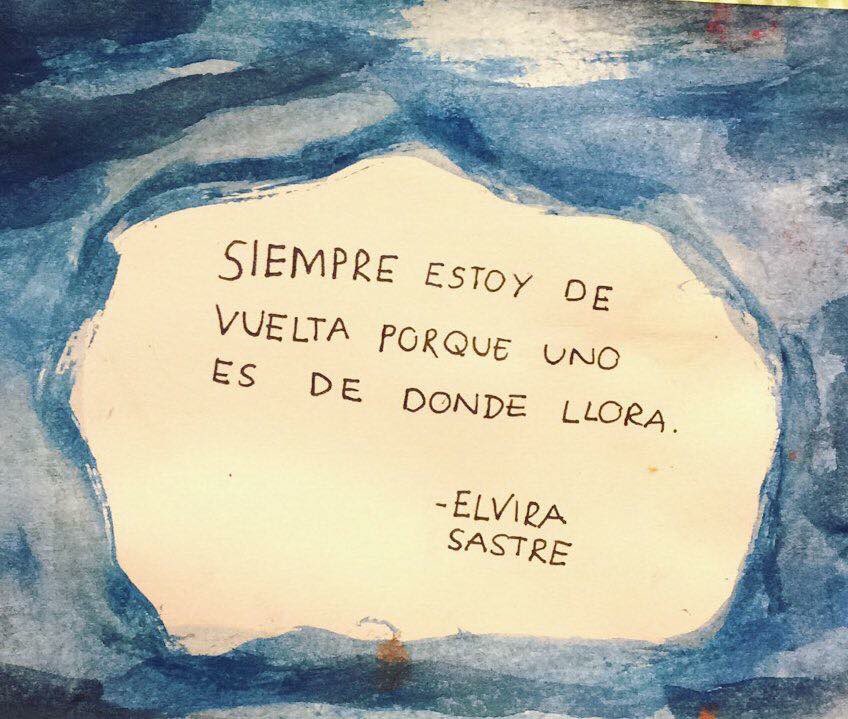 SIEMPRE ESTOY DE
VUELTA PORQUE UNO
ES DE DONDE LLORA.
-ELVIRA
SASTRE